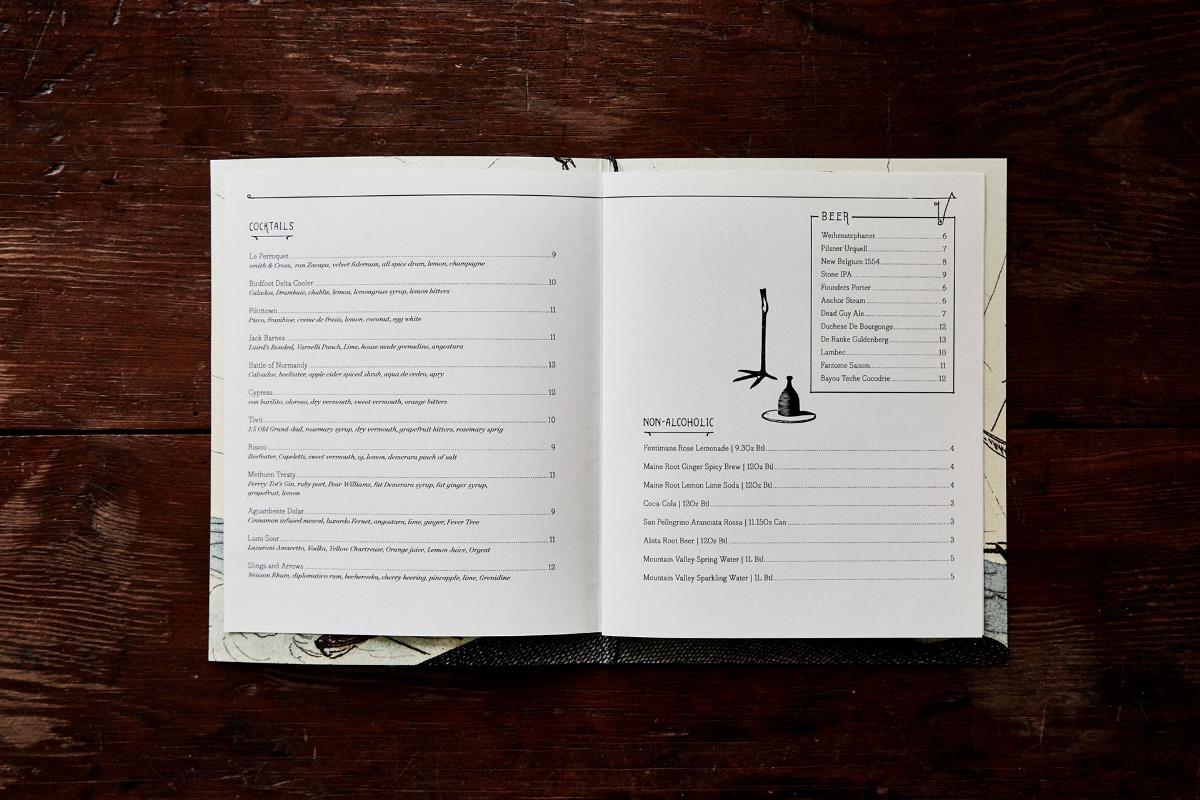 COCKTAILS
Le Perroquet 9
smith & Cross, ron Zacapa, velvet falernum, all spice dram, lemon, champagne
Birdfoot Delta Cooler 10
Calados, Drambuie, chablis, lemon, lemongrass syrup, lemon bitters
Pilottown 11
Pisco, frambioe, creme de frasis, lemon, coconut, egg white
Jack Barnes 11
Laird's Bonded, Varnelli Punch, Lime, house made grenadine, angostura
Battle of Normandy 13
Calvados, beefeater, apple cider spiced shrub, aqua de cedro, apry
Cypress 12
ron barilito, oloroso, dry vermouth, sweet vermouth, orange bitters
Tivit 10
1.5 Old Grand-dad, rosemary syrup, dry vermouth, grapefruit bitters, rosemary sprig
Risico 9
Beefeater, Capeletti, sweet vermouth, oj, lemon, demerara pinch of salt
Methuen Treaty 11
Perry Tot's Gin, ruby port, Pear Williams, fat Demerara syrup, fat ginger syrup,
grapefruit, lemon
Aguardiente Dolar 9
Cinnamon infused mescal, luxardo Fernet, angostura, lime, ginger, Fever Tree
Lumi Sour 11
Lazaroni Amaretto, Vodka, Yellow Chartreuse, Orange juice, Lemon Juice, Orgeat
Slings and Arrows 12
Neisson Rhum, diplomatico rum, becherovka, cherry heering, pineapple, lime, Grenidine
BEER
Weihenstephaner 6
Pilsner Urquell 7
New Belgium 1554 8
Stone IPA 9
Founders Porter 6
Anchor Steam 6
Dead Guy Ale 7
Duchesse De Bourgonge 12
De Ranke Guldenberg 13
Lambec 10
Fantome Saison 11
Bayou Teche Cocodrie 12
NON-ALCOHOLIC
Fentimans Rose Lemonade | 9.3Oz Btl 4
Maine Root Ginger Spicy Brew | 12Oz Btl 4
Maine Root Lemon Lime Soda | 12Oz Btl 4
Coca-Cola | 12Oz Btl 3
San Pellegrino Aranciata Rossa | 11.15Oz Can 3
Abita Root Beer | 12Oz Btl 3
Mountain Valley Spring Water | 1L Btl 5
Mountain Valley Sparkling Water | 1L Btl 5